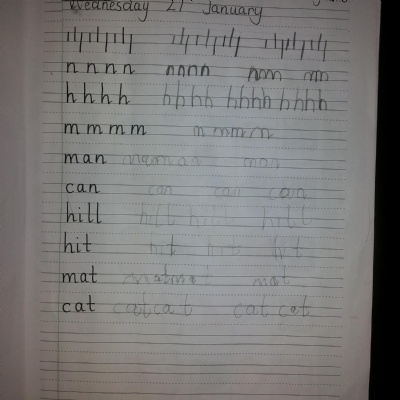 Wednesday 21 January
n n n n nnnn nnn nn
h h h h hhhh hhhh hhhh
m m m m m mmm m
man man man man
can can can can
hill hill hill hill
hit hit hit hit
mat mat mat mat
cat cat cat cat cet